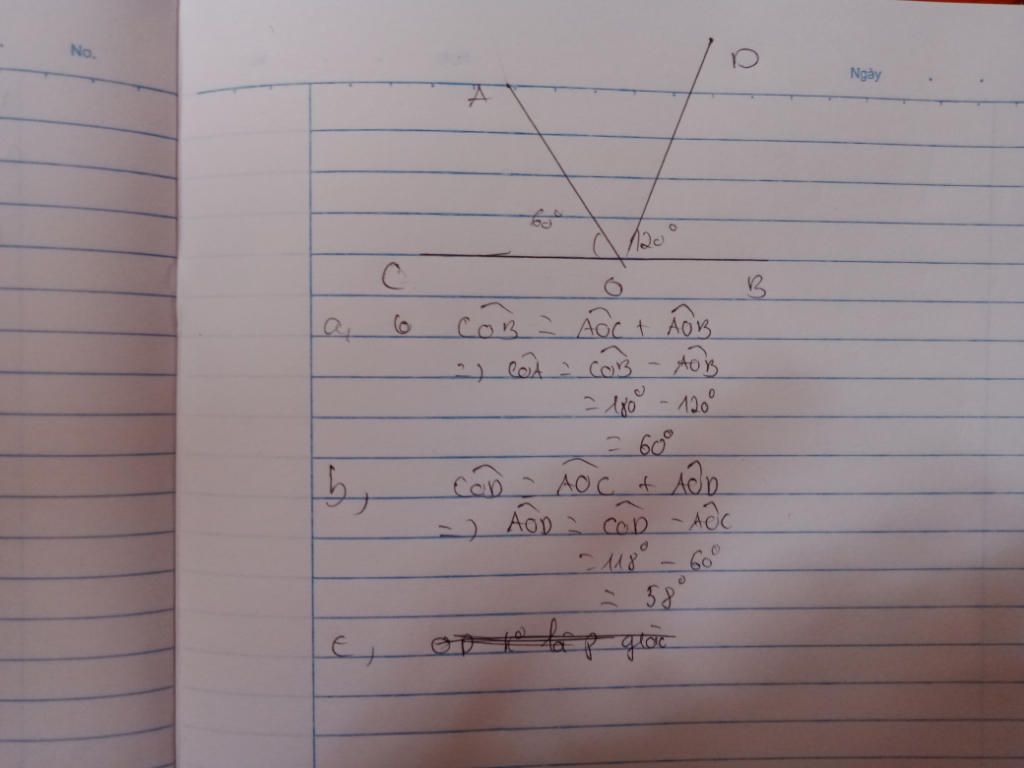 No.
Ngày
D
A
60° 120°
C O B
a, 6 COB = AOC + AOB
=) COA = COB - AOB
= 180° - 120°
= 60°
b, COD = AOC + AOD
=) AOD = COD - AOC
= 118° - 60°
= 58°
c, OD k° là p giác